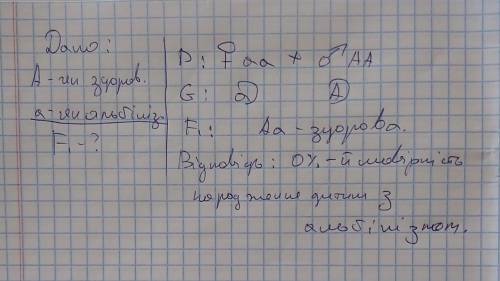 Дано:
А - ген здоров.
а - ген альбініз.
F₁ - ?
P: ♀ aa × ♂ AA
G: a A
F₁: Aa - здорова.
Відповідь: 0% - й імовірність
народження дитини з
альбінізмом.